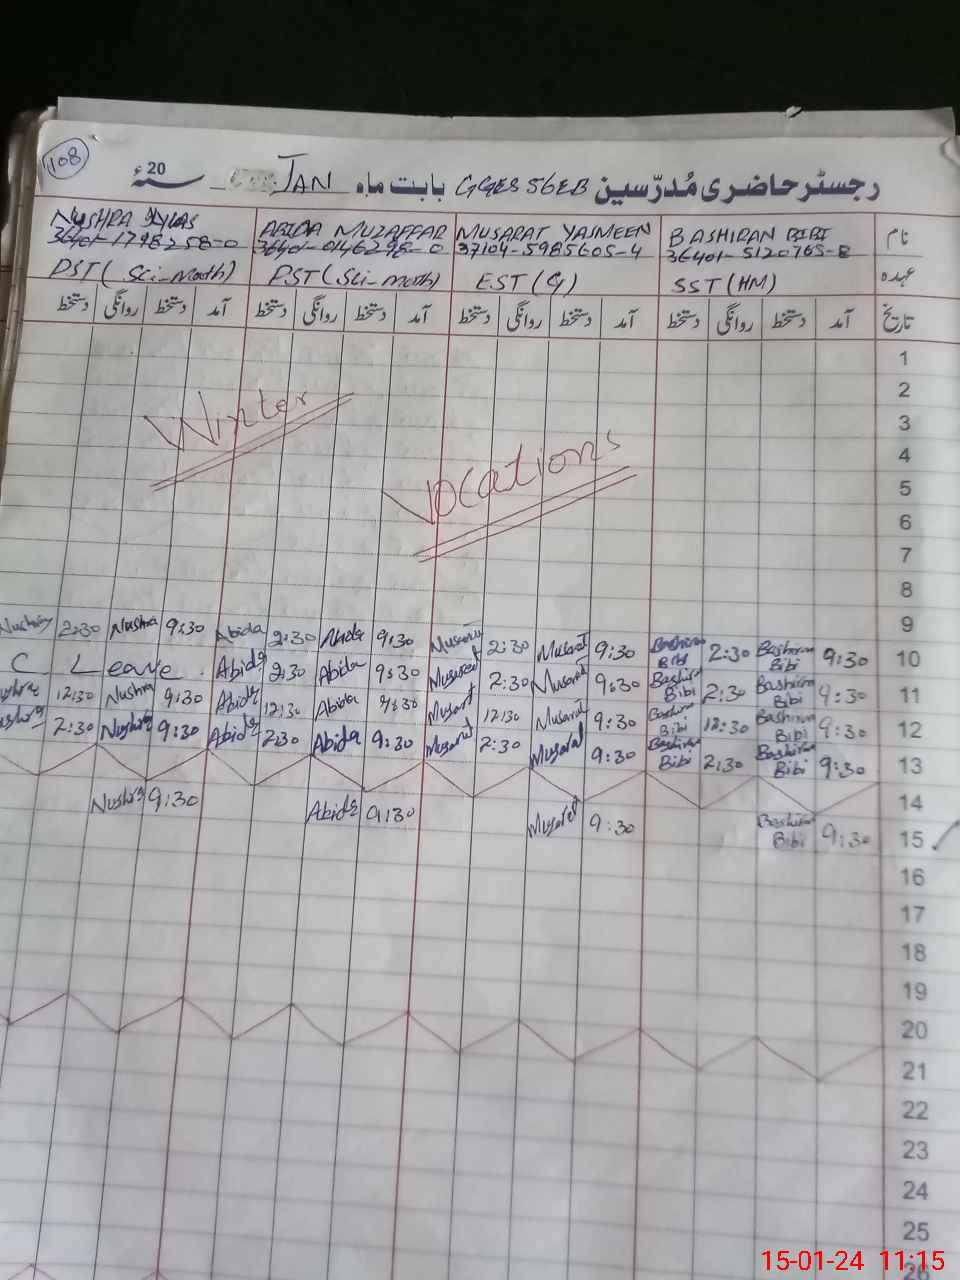 108
رجسٹر حاضری مُدرّسین GGES 56EB بابت ماہ JAN 20 سنہء
نام BASHIRAN BIBI MUSARAT YASMEEN ABIDA MUZAFFAR NUSHRA
36401-5120765-8 37104-5985605-4 36401-0146298-0 36401-1798258-0
عہدہ SST (HM) EST (G) PST (Sci-math) PST (Sci-math)
تاریخ آمد دستخط روانگی دستخط آمد دستخط روانگی دستخط آمد دستخط روانگی دستخط دستخط روانگی دستخط
1
2
3
Winter
4
5
Vocations
6
7
8
9 9:30 Bashiran Bibi 2:30 Bashiran Bibi 9:30 Musarat 2:30 Musarat 9:30 Abida 2:30 Abida 9:30 Nushra 2:30 Nushra
10 9:30 Bashiran Bibi 2:30 Bashiran Bibi 9:30 Musarat 2:30 Musarat 9:30 Abida 2:30 Abida C Leave
11 9:30 Bashiran Bibi 12:30 Bashiran Bibi 9:30 Musarat 12:30 Musarat 9:30 Abida 12:30 Abida 9:30 Nushra 12:30
12 9:30 Bashiran Bibi 2:30 Bashiran Bibi 9:30 Musarat 2:30 Musarat 9:30 Abida 2:30 Abida 9:30 Nushra 2:30
13
14
15 9:30 Bashiran Bibi 9:30 Musarat 9:30 Abida 9:30 Nushra
16
17
18
19
20
21
22
23
24
25
26
15-01-24 11:15